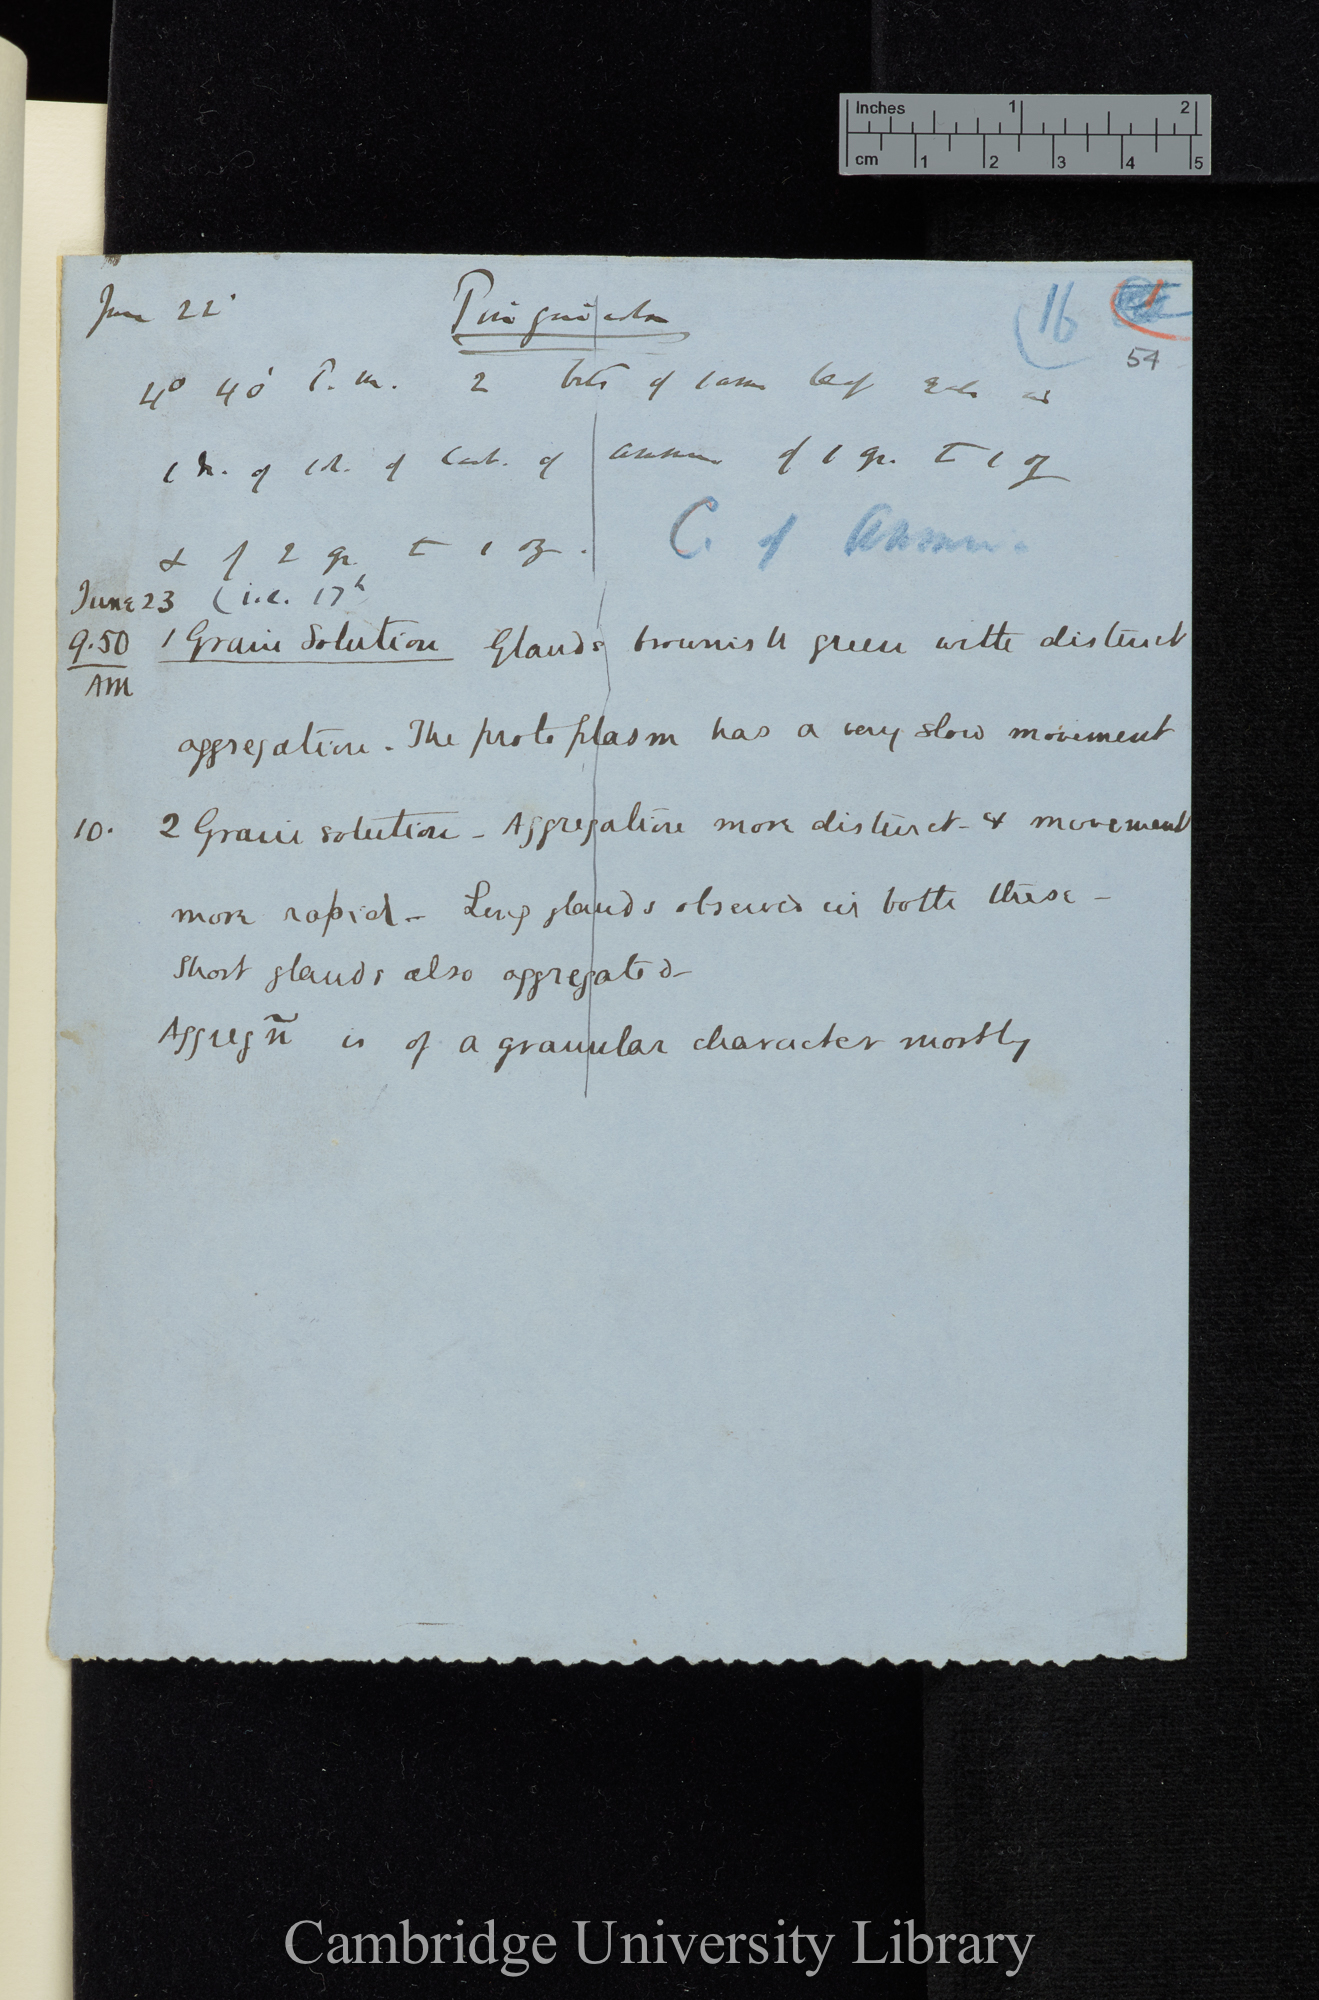 Inches 1 2
cm 1 2 3 4 5
June 22' Pinguicula 16 1
54
4° 40' P.m. 2 bits of same leaf
of Carb. of Ammon of 1 gr. to 1 oz
& of 2 gr. to 1 oz.
C. of Ammon.
June 23 (i.e. 17h
9.50 1 Grain Solution Glands brownish green with distinct
AM
aggregation. The protoplasm has a very slow movement
10. 2 Grain solution - Aggregation more distinct - & movement
more rapid - Long glands observed in both these -
Short glands also aggregated -
Aggregñ is of a granular character mostly
Cambridge University Library